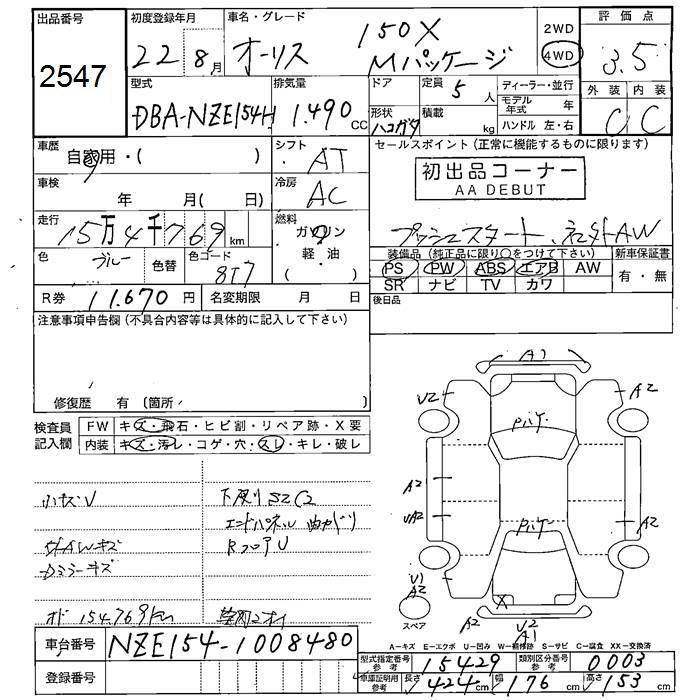 出品番号
2547
初度登録年月
22 8月
車名・グレード
オーリス 150X Mパッケージ
2WD
4WD
評価点
3.5
外装 内装
C C
型式
DBA-NZE154H
排気量
1.490 CC
ドア
形状
ハコガタ
定員
5 人
積載
kg
ディーラー・並行
モデル年式 年
ハンドル 左・右
車歴
自家用・( )
シフト
AT
セールスポイント (正常に機能するものに限ります)
初出品コーナー
AA DEBUT
プッシュスタート、社外AW
車検
年 月( 日)
冷房
AC
走行
15万4千769 km
燃料
ガソリン
軽・油
( )
色
ブルー
色替
色コード
8T7
装備品 (純正品に限り○をつけて下さい)
PS PW ABS エアB AW
SR ナビ TV カワ
新車保証書
有・無
R券
11.670 円
名変期限 月 日
後日品
注意事項申告欄 (不具合内容等は具体的に記入して下さい)
修復歴 有 (箇所 )
検査員記入欄
FW キズ・飛石・ヒビ割・リペア跡・X要
内装 キズ・汚レ・コゲ・穴・スレ・キレ・破レ
小キズU
下廻りSZC2
エンドパネル曲がり
タイAWキズ
RフロアU
ドミラーキズ
オド 154.769km
A1
U2
A2
A2
UA2
A2
U1
A2
X
A2
U2
A1
A2
スペア
A-キズ E-エクボ U-凹み W-補修跡 S-サビ C-腐食 XX-交換済
車台番号
NZE154-1008480
登録番号
型式指定番号
参考
15429
類別区分番号
参考
0003
車庫証明用
参考
長さ 424cm 幅 176cm 高さ 153cm